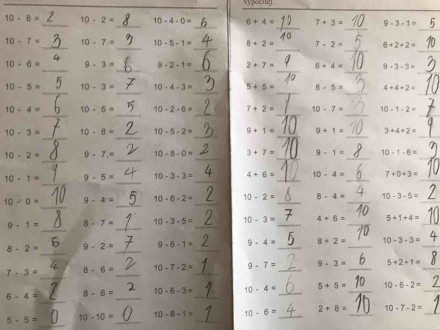 vypočítej.
10 - 8 = 2
10 - 7 = 3
10 - 6 = 4
10 - 5 = 5
10 - 4 = 6
10 - 3 = 7
10 - 2 = 8
10 - 1 = 9
10 - 0 = 10
9 - 1 = 8
8 - 2 = 6
7 - 3 = 4
6 - 4 = 2
5 - 5 = 0
10 - 2 = 8
10 - 7 = 3
9 - 3 = 6
10 - 3 = 7
10 - 5 = 5
10 - 8 = 2
9 - 7 = 2
9 - 5 = 4
9 - 4 = 5
8 - 7 = 1
9 - 2 = 7
8 - 6 = 2
8 - 6 = 2
10 - 10 = 0
10 - 4 - 0 = 6
10 - 5 - 1 = 4
9 - 2 - 1 = 6
10 - 4 - 3 = 3
10 - 2 - 6 = 2
10 - 5 - 2 = 3
10 - 8 - 0 = 2
10 - 3 - 3 = 4
10 - 6 - 2 = 2
10 - 3 - 5 = 2
9 - 6 - 1 = 2
10 - 7 - 2 = 1
10 - 6 - 3 = 1
10 - 8 - 1 = 1
6 + 4 = 10
8 + 2 = 10
2 + 7 = 9
5 + 5 = 10
7 + 2 =
9 + 1 = 10
3 + 7 = 10
4 + 6 = 10
10 - 2 = 8
10 - 3 = 7
9 - 4 = 5
9 - 7 = 2
10 - 4 = 6
10 - 6 = 4
7 + 3 = 10
7 - 2 = 5
6 + 4 = 10
8 - 5 = 3
10 - 7 = 3
9 + 1 = 10
9 - 1 = 8
10 - 4 = 6
8 - 4 = 4
4 + 6 = 10
8 + 2 = 10
9 - 3 = 6
5 + 5 = 10
2 + 8 = 10
9 - 3 - 1 = 5
6 + 2 + 2 = 10
9 - 3 - 3 = 3
4 + 1 + 4 = 9
10 - 1 - 2 = 7
3 + 4 + 2 = 9
10 - 1 - 6 = 3
7 + 0 + 3 = 10
10 - 3 - 5 = 2
5 + 1 + 4 = 10
10 - 3 - 3 = 4
5 + 2 + 1 = 8
10 - 6 - 2 = 2
10 - 7 - 2 = 1